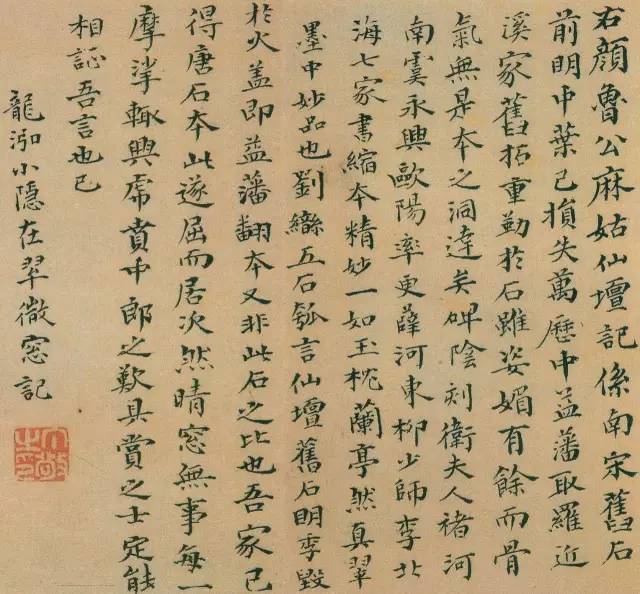 右顔魯公麻姑仙壇記係南宋舊石
前明中葉已損失萬歷中益藩取羅近
溪家舊拓重勒於石雖姿媚有餘而骨
氣無是本之洞達矣碑陰刻衛夫人褚河
南虞永興歐陽率更薛河東柳少師李北
海七家書縮本精妙一如玉枕蘭亭然真翠
墨中妙品也劉鑾五石瓠言仙壇舊石明季毀
於火蓋即益藩翻本又非此石之比也吾家已
得唐石本此遂屈而居次然晴窓無事每一
摩挲輒興虎賁中郎之歎具賞之士定能
相証吾言也已
龍泓小隱在翠微窓記
丁敬之印